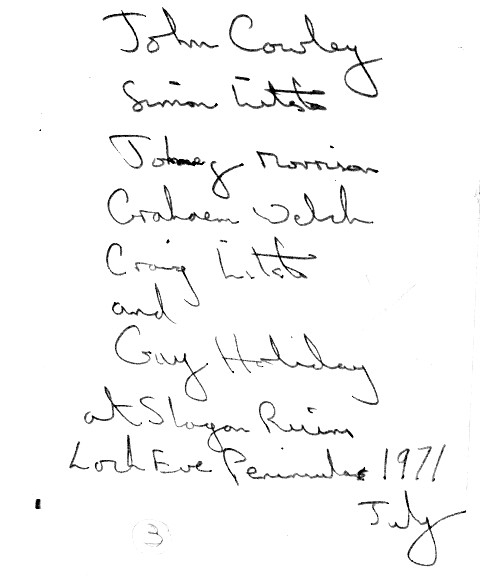 John Cowley
Simon
Johnny Morrison
Graham Welch
Craig
and
Guy Holiday
at Slagan Ruins
Loch Ewe Peninsular 1971
July
3